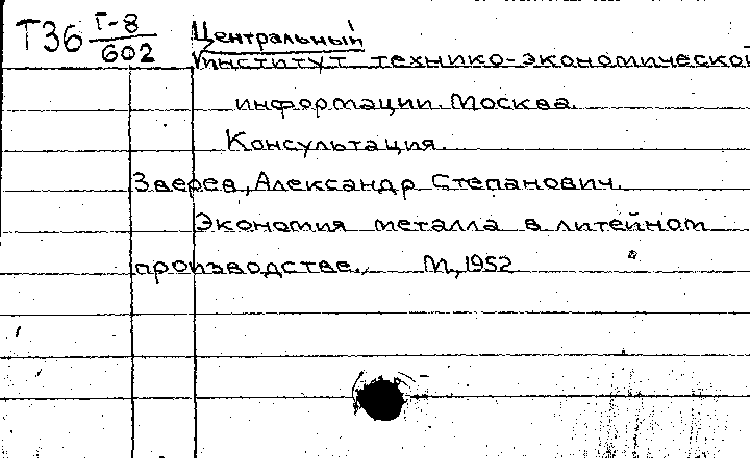 Т36 Г-8
602
Центральный
институт технико-экономической
информации. Москва.
Консультация.
Зверев, Александр Степанович.
Экономия металла в литейном
производстве., М, 1952